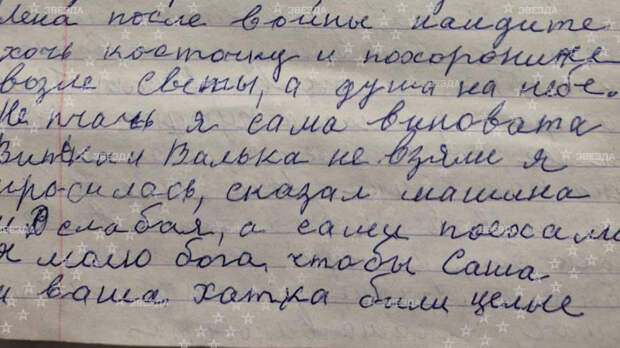 Лена после войны найдите
хочь косточку и похороните
возле Светы, а душа на небе.
Не плачь я сама виновата
Витька и Валька не взяли я
просилась, сказал машина
слабая, а сами поехали
я молю бога, чтобы Саша
и ваша хатка были целые